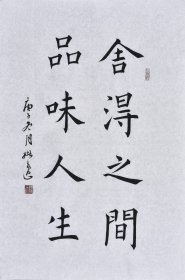 舍得之間
品味人生
庚子冬月